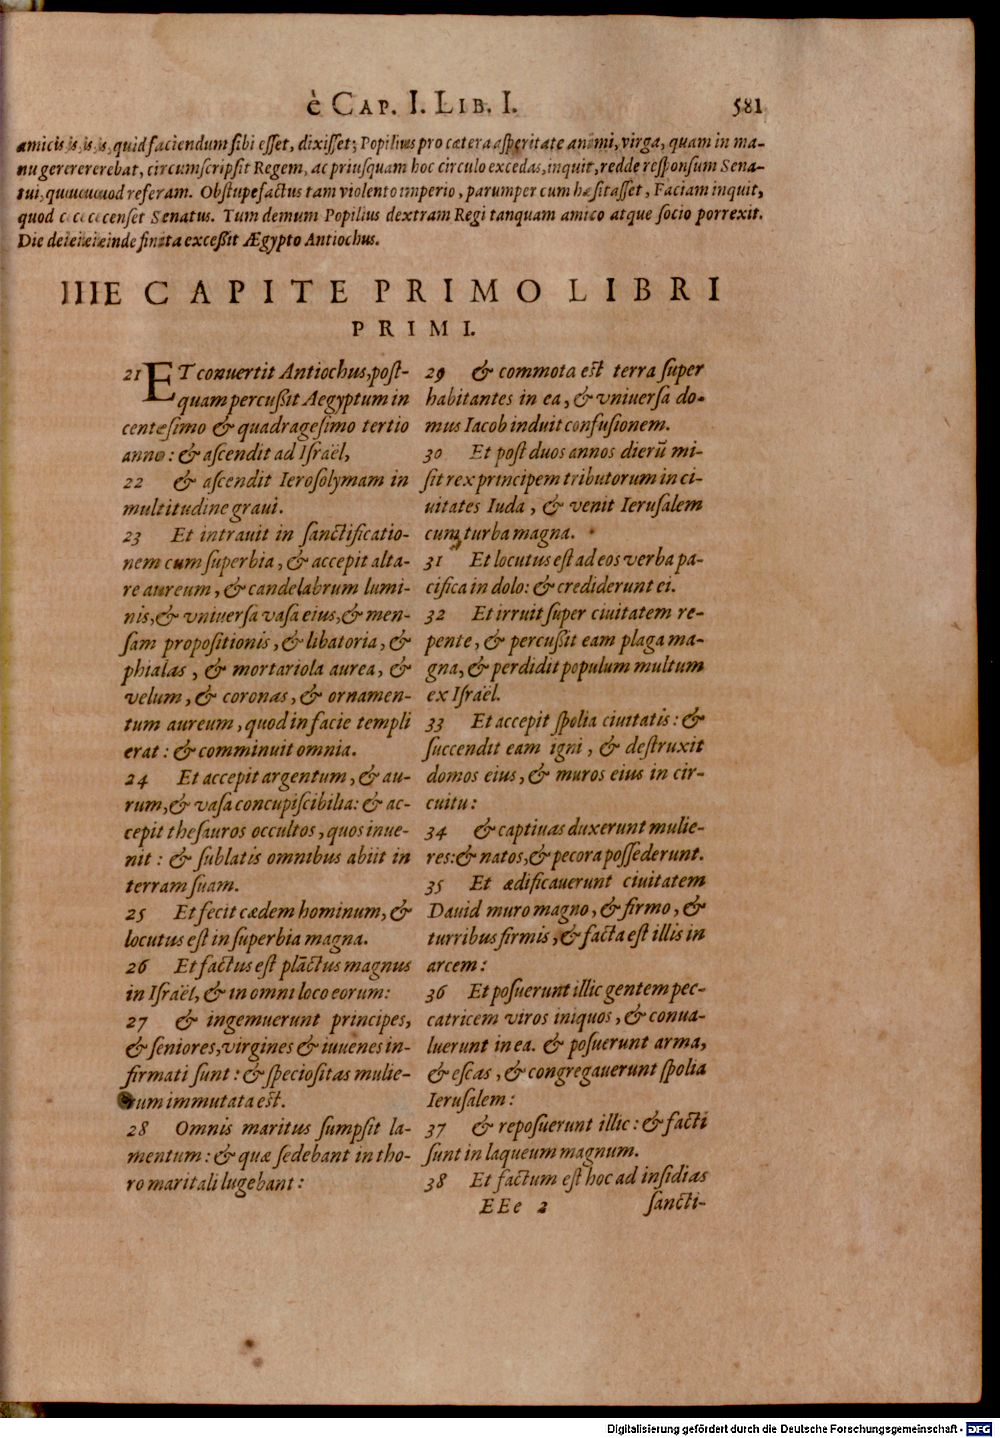 è CAP. I. LIB. I. 581
amicis is, is, is, quid faciendum sibi esset, dixisset; Popilius pro cætera asperitate animi, virga, quam in ma-
nu gererererebat, circumscripsit Regem, ac priusquam hoc circulo excedas, inquit, redde responsum Sena-
tui, ququququod referam. Obstupefactus tam violento imperio, parumper cum hæsitasset, Faciam inquit,
quod c c c censet Senatus. Tum demum Popilius dextram Regi tanquam amico atque socio porrexit.
Die deieieieinde finita excessit Ægypto Antiochus.
IIIE CAPITE PRIMO LIBRI
PRIMI.
21 ET conuertit Antiochus, post-
quam percussit Aegyptum in
centesimo & quadragesimo tertio
anno: & ascendit ad Israël,
22 & ascendit Ierosolymam in
multitudine graui.
23 Et intrauit in sanctificatio-
nem cum superbia, & accepit alta-
re aureum, & candelabrum lumi-
nis, & vniuersa vasa eius, & men-
sam propositionis, & libatoria, &
phialas, & mortariola aurea, &
velum, & coronas, & ornamen-
tum aureum, quod in facie templi
erat: & comminuit omnia.
24 Et accepit argentum, & au-
rum, & vasa concupiscibilia: & ac-
cepit thesauros occultos, quos inue-
nit: & sublatis omnibus abiit in
terram suam.
25 Et fecit cædem hominum, &
locutus est in superbia magna.
26 Et factus est plāctus magnus
in Israël, & in omni loco eorum:
27 & ingemuerunt principes,
& seniores, virgines & iuuenes in-
firmati sunt: & speciositas mulie-
rum immutata est.
28 Omnis maritus sumpsit la-
mentum: & quæ sedebant in tho-
ro maritali lugebant:
29 & commota est terra super
habitantes in ea, & vniuersa do-
mus Iacob induit confusionem.
30 Et post duos annos dierū mi-
sit rex principem tributorum in ci-
uitates Iuda, & venit Ierusalem
cum turba magna.
31 Et locutus est ad eos verba pa-
cifica in dolo: & crediderunt ei.
32 Et irruit super ciuitatem re-
pente, & percussit eam plaga ma-
gna, & perdidit populum multum
ex Israël.
33 Et accepit spolia ciuitatis: &
succendit eam igni, & destruxit
domos eius, & muros eius in cir-
cuitu:
34 & captiuas duxerunt mulie-
res: & natos, & pecora possederunt.
35 Et ædificauerunt ciuitatem
Dauid muro magno, & firmo, &
turribus firmis, & facta est illis in
arcem:
36 Et posuerunt illic gentem pec-
catricem viros iniquos, & conua-
luerunt in ea. & posuerunt arma,
& escas, & congregauerunt spolia
Ierusalem:
37 & reposuerunt illic: & facti
sunt in laqueum magnum.
38 Et factum est hoc ad insidias
EEe 2 sancti-
Digitalisierung gefördert durch die Deutsche Forschungsgemeinschaft - DFG